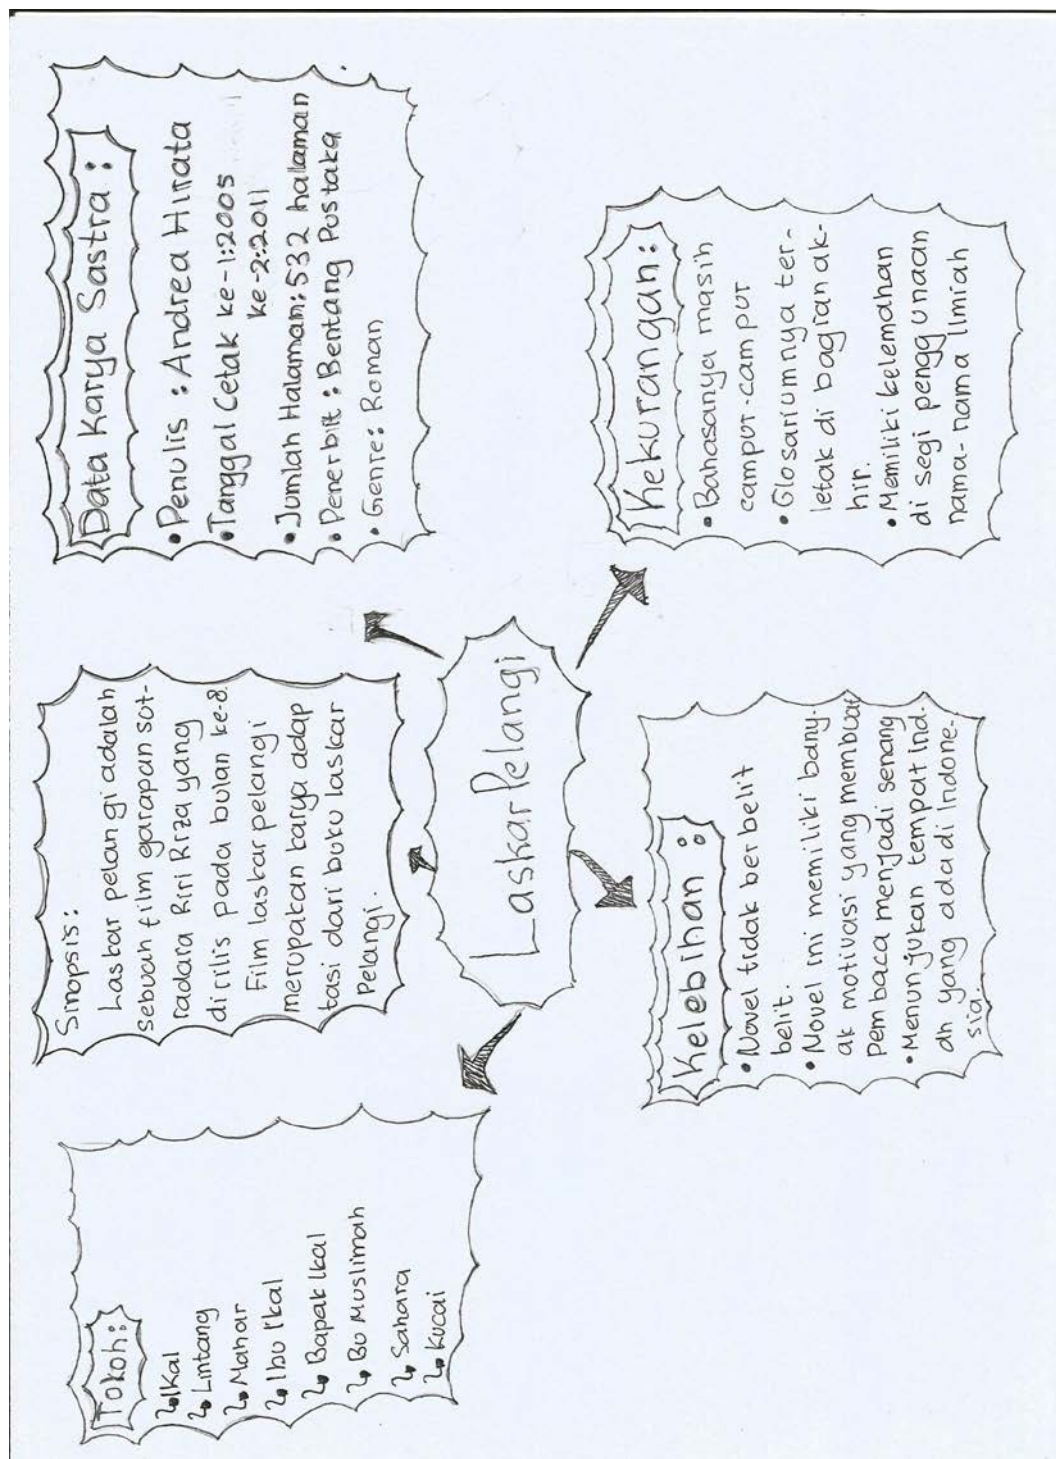 Tokoh:
Ikal
Lintang
Mahar
Ibu Ikal
Bapak Ikal
Bu Muslimah
Sahara
Kucai
Sinopsis:
Laskar pelangi adalah
sebuah film garapan sut-
radara Riri Riza yang
dirilis pada bulan ke-8.
Film laskar pelangi
merupakan karya adap
tasi dari buku laskar
Pelangi.
Data Karya Sastra:
• Penulis : Andrea Hirata
• Tanggal Cetak ke-1:2005
ke-2:2011
• Jumlah Halaman: 532 halaman
• Penerbit : Bentang Pustaka
• Genre: Roman
Laskar Pelangi
Kelebihan :
• Novel tidak berbelit
belit.
• Novel ini memiliki bany-
ak motivasi yang membuat
Pembaca menjadi senang
• Menunjukan tempat ind-
ah yang ada di Indone-
sia.
Kekurangan:
• Bahasanya masih
campur-campur
• Glosariumnya ter-
letak di bagian ak-
hir.
• Memiliki kelemahan
di segi penggunaan
nama-nama Ilmiah